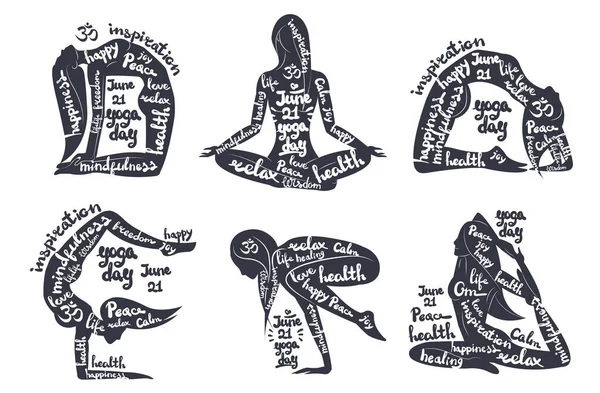 ॐ
inspiration
happy
joy
Peace
love
relax
happiness
life
freedom
June
21
yoga
day
health
mindfulness
ॐ
life healing
June
21
yoga
day
mindfulness
Calm
joy
happy
love
Peace
relax
Wisdom
health
inspiration
June
21
yoga
day
life
love
relax
happiness
mindfulness
ॐ
Peace
Calm
freedom
health
joy
inspiration
mindfulness
life
Wisdom
freedom
happy
joy
yoga
day
June
21
love
ॐ
Peace
life
relax
Calm
health
ॐ
relax
Calm
life
healing
Wisdom
inspiration
love
health
happy
Peace
joy
June
21
yoga
day
mindfulness
yoga
day
Peace
joy
life
Om
June
21
Peace
health
love
inspiration
Calm
happiness
relax
healing
mindfulness